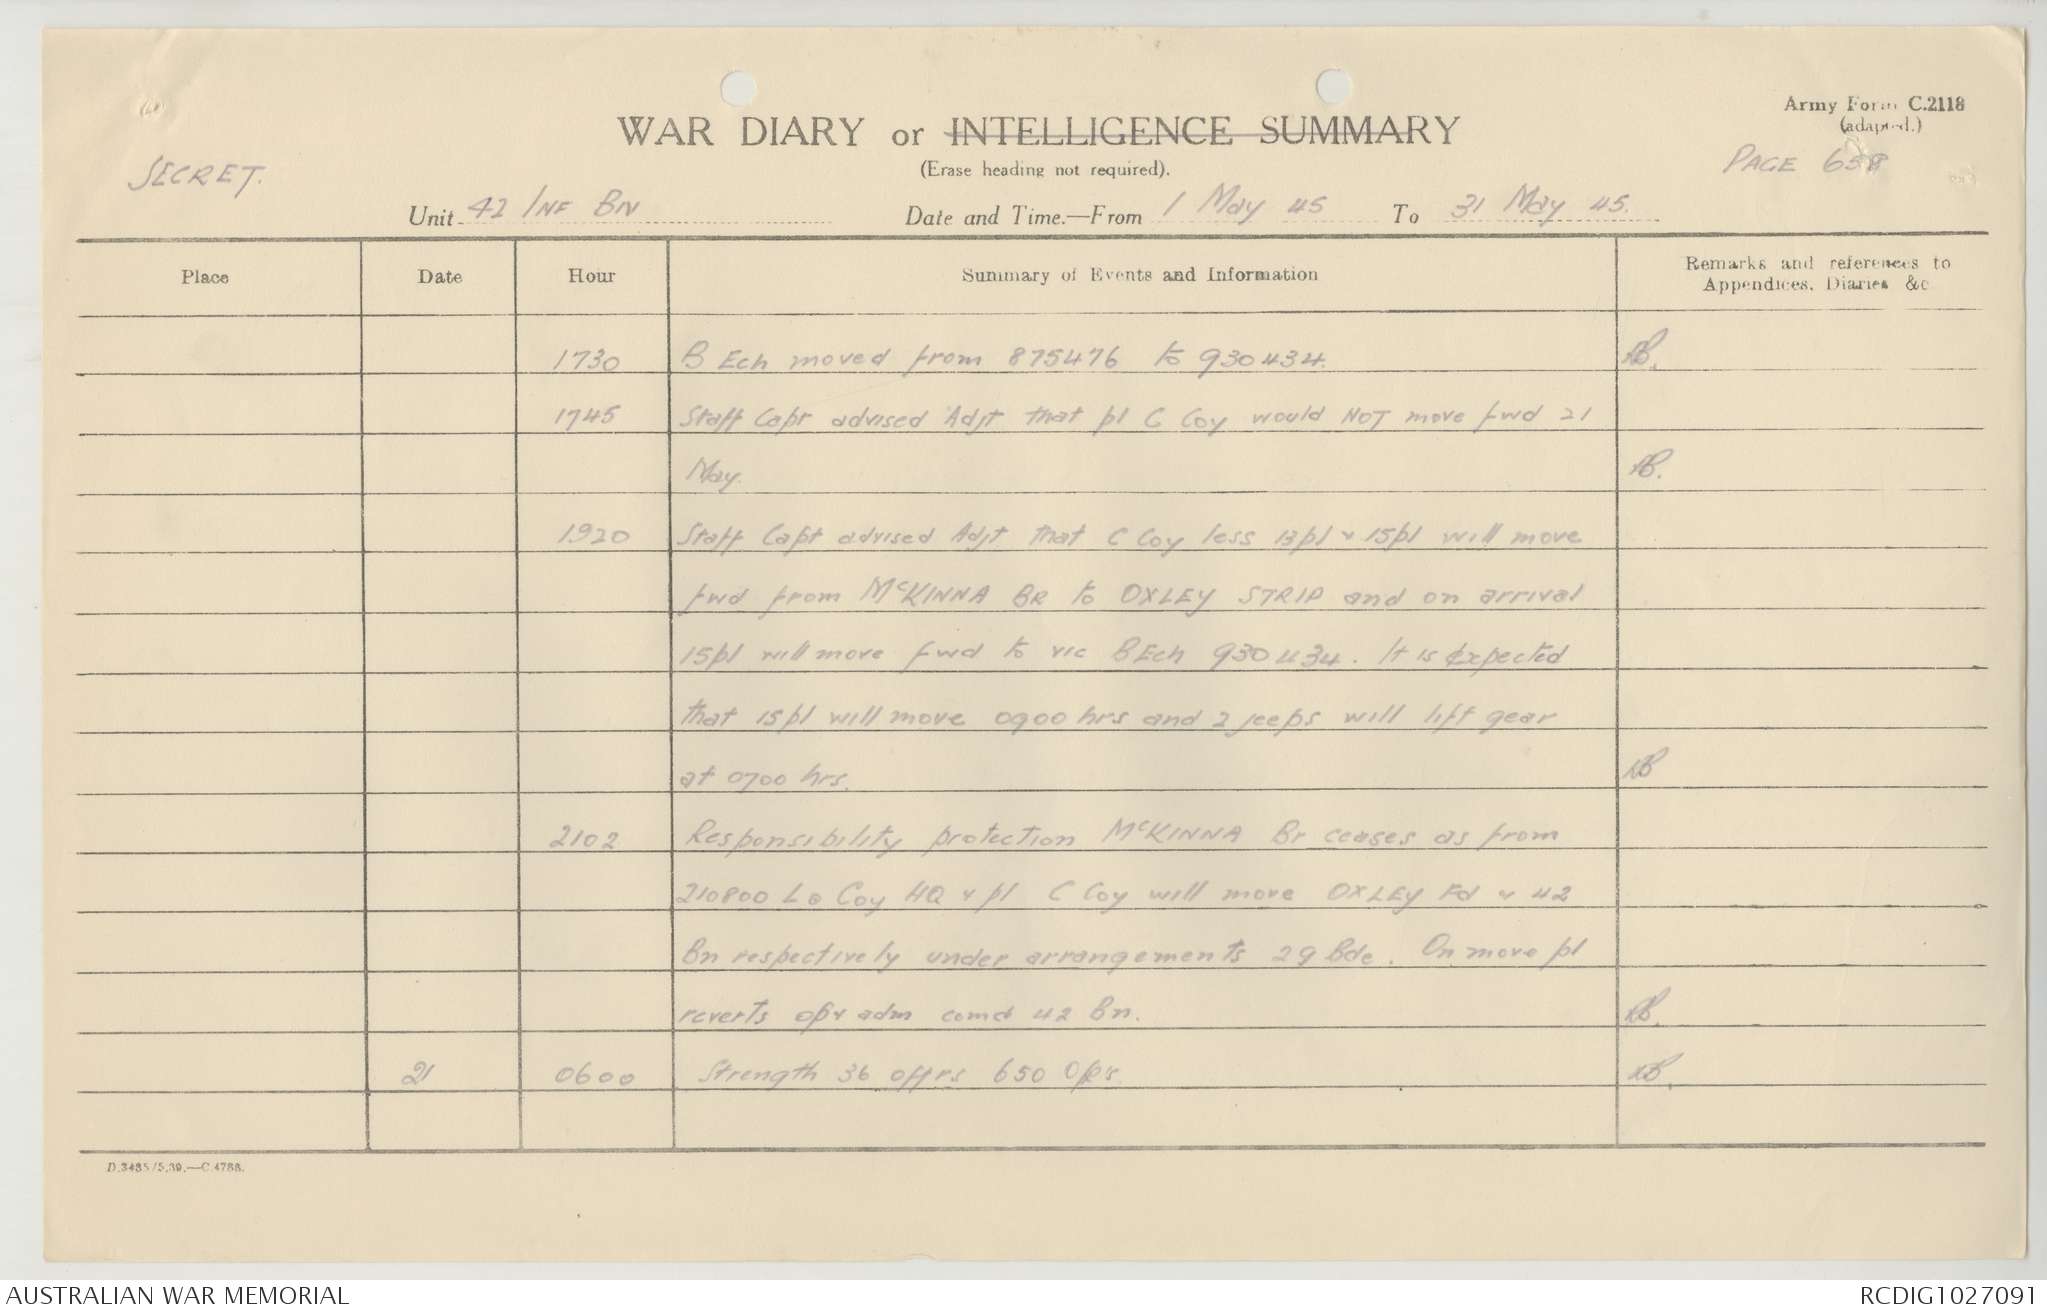 Army Form C.2118
(adapted.)
WAR DIARY or INTELLIGENCE SUMMARY
(Erase heading not required).
SECRET.
PAGE 658
Unit 42 INF BN
Date and Time.—From 1 May 45 To 31 May 45.
Place Date Hour Summary of Events and Information Remarks and references to
Appendices, Diaries &c
1730 B Ech moved from 875476 to 930434.
1745 Staff Capt advised Adjt that pl C Coy would NOT move fwd 21
May.
1920 Staff Capt advised Adjt that C Coy less 13pl & 15pl will move
fwd from McKINNA BR to OXLEY STRIP and on arrival
15pl will move fwd to vic B Ech 930434. It is expected
that 15pl will move 0900 hrs and 2 jeeps will lift gear
at 0700 hrs.
2102 Responsibility protection McKINNA Br ceases as from
210800 Coy HQ & pl C Coy will move OXLEY Fd & 42
Bn respectively under arrangements 29 Bde. On move pl
reverts op & adm comd 42 Bn.
21 0600 Strength 36 offrs 650
D.3485/5.39.—C.4788.
AUSTRALIAN WAR MEMORIAL
RCDIG1027091